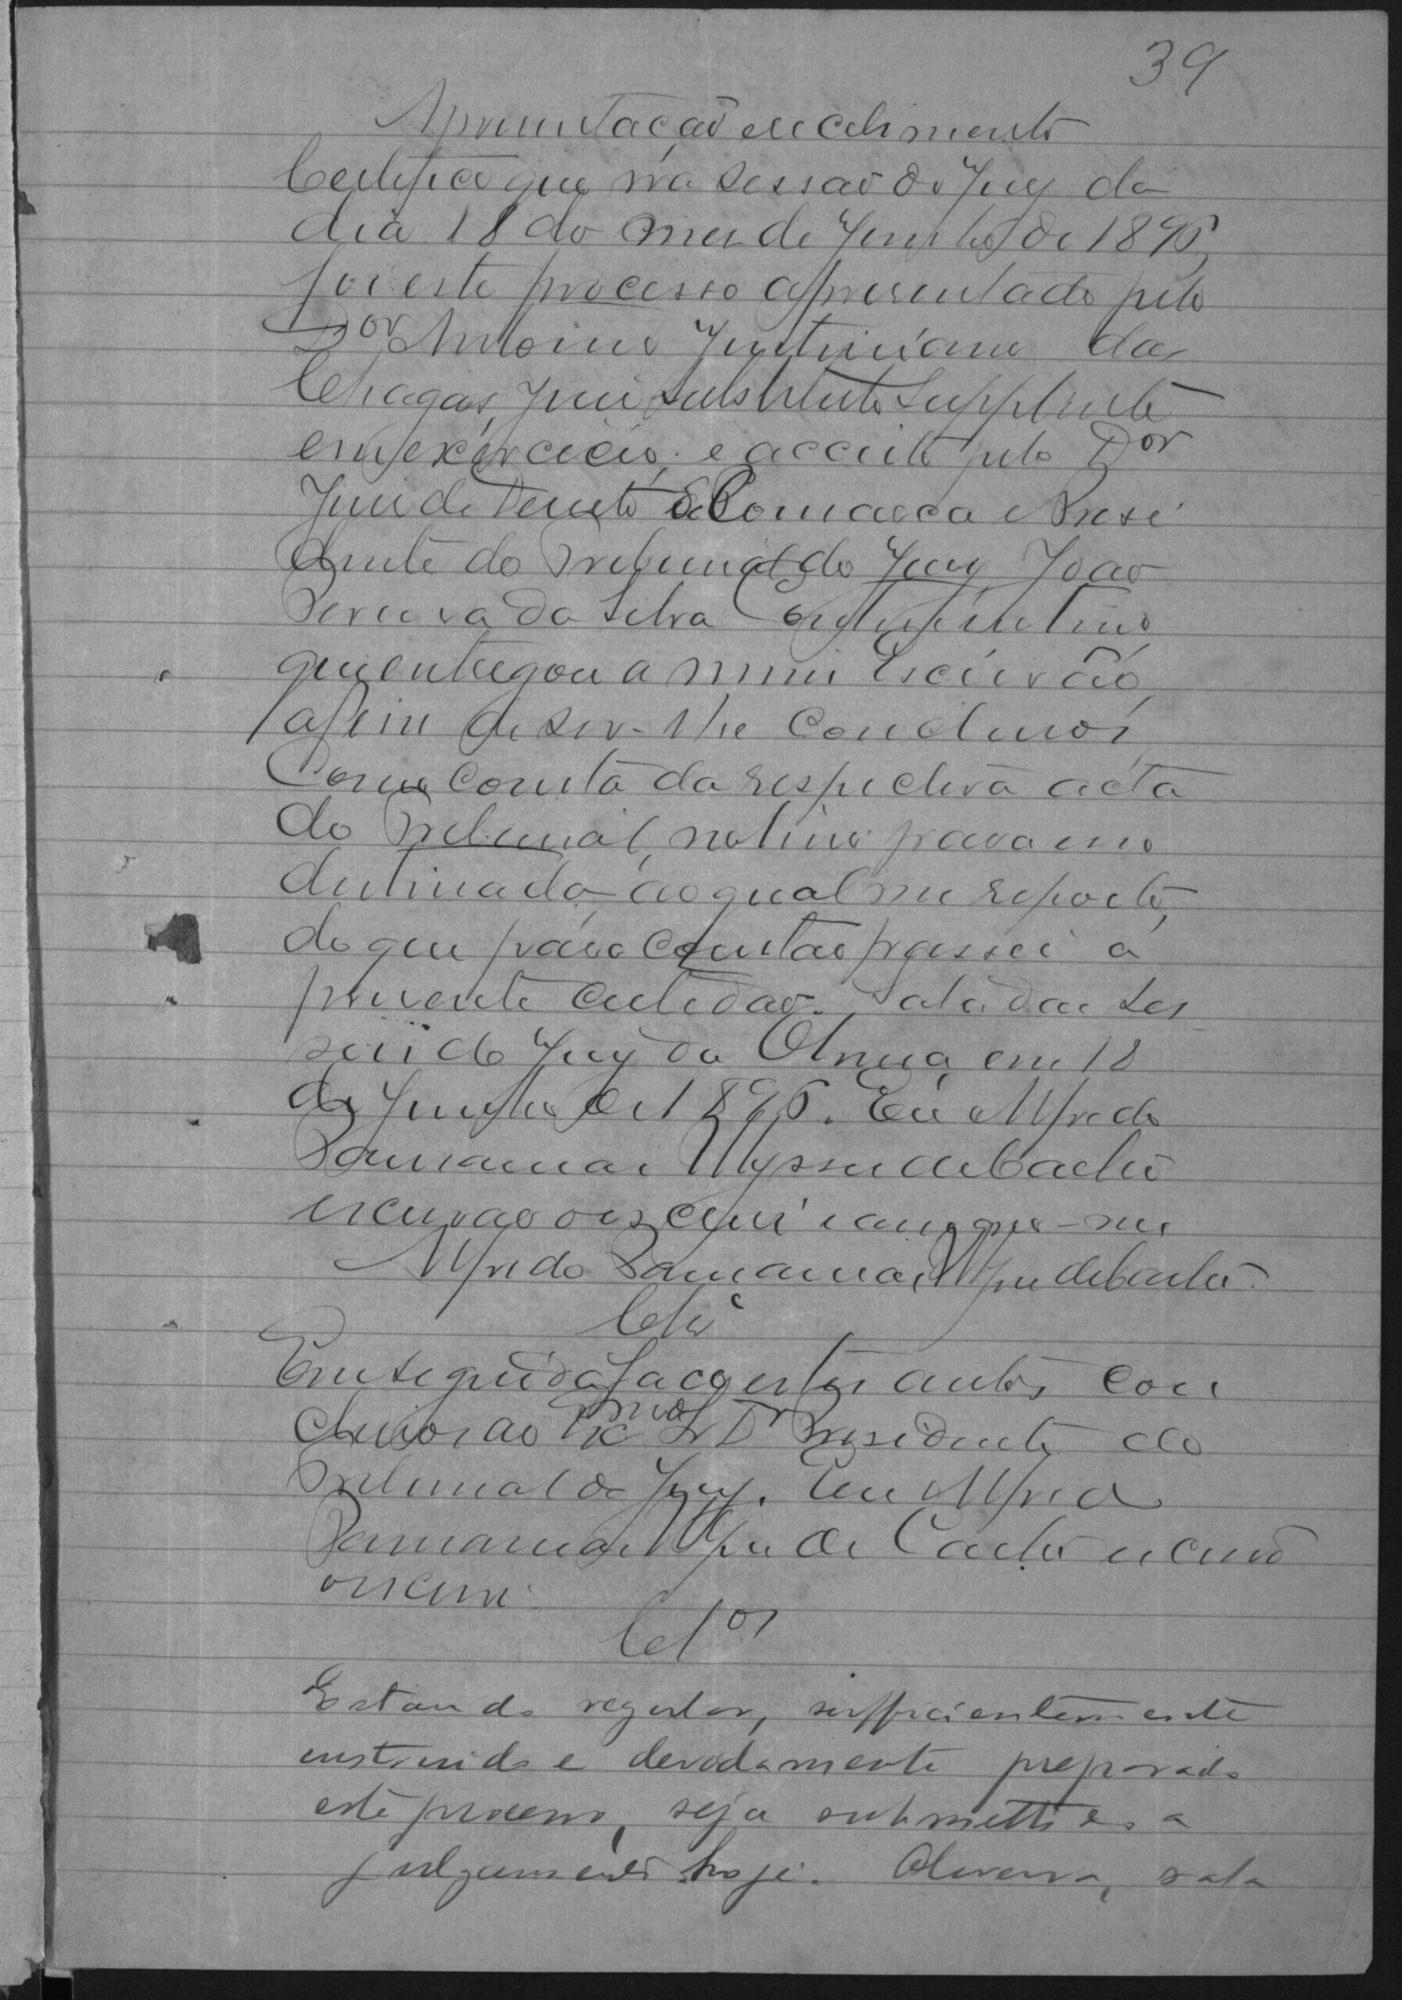 39
Apresentação e recebimento
Certifico que na sessão do Jury do
dia 18 do mes de Junho de 1896,
foi este processo apresentado pelo
Dor Antonio Justiniano das
Chagas, Juiz Substituto Supplente
em exercicio, e acceito pelo Dor
Juiz de Direito da Comarca e Presi
dente do Tribunal do Jury João
Pereira da Silva Continentino
que entregou a mim Escrivão,
afim de ser-lhe conclusos,
Como consta da respectiva acta
do Tribunal, no livro para esse
destinado, ao qual me reporto,
do que para constar passei a
presente certidão. Sala das Ses
sões do Jury da Oliveira, em 18
de Junho de 1896. Eu Alfredo
Ulysses de Castro
escrivão o escrevi e assigno-me
Alfredo Ulysses de Castro
Cls
Em seguida faço estes autos con
clusos ao Exmo Sr Dr Presidente do
Tribunal do Jury. Eu Alfredo
de Castro escrivão
o escrevi.
Clos
Estando regular, sufficientemente
instruido e devidamente preparado
este processo, seja submettido a
julgamento hoje. Oliveira, sala